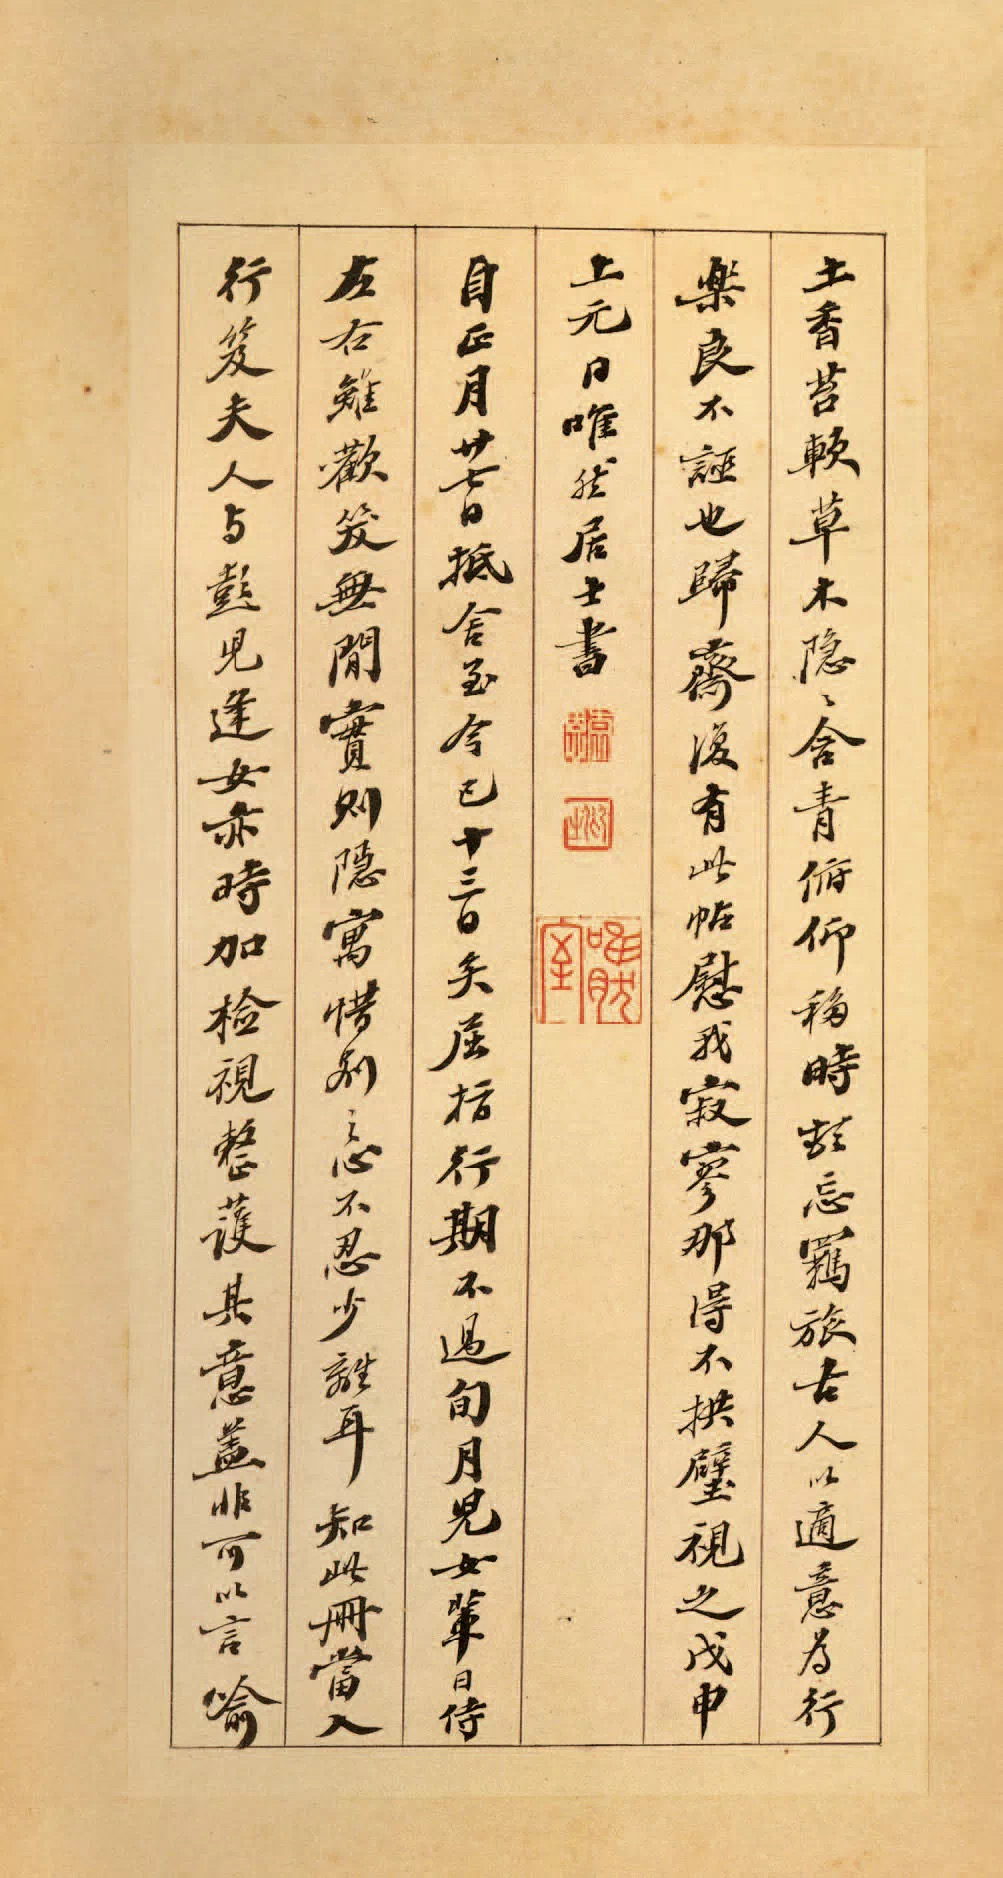 土香苔軟草木隐〻含青俯仰移時頓忘羈旅古人以適意為行
樂良不誣也歸齋後有此帖慰我寂寥那得不拱璧視之戊申
上元日唯然居士書
唯然室
自正月廿七日抵舍至今已十三日矣屈指行期不過旬月兒女輩日侍
左右雖歡笑無間實則隱寓惜別之忘不忍少離耳知此冊當入
行笈夫人与彭兒逢女亦時加檢視整護其意蓋非可以言喻